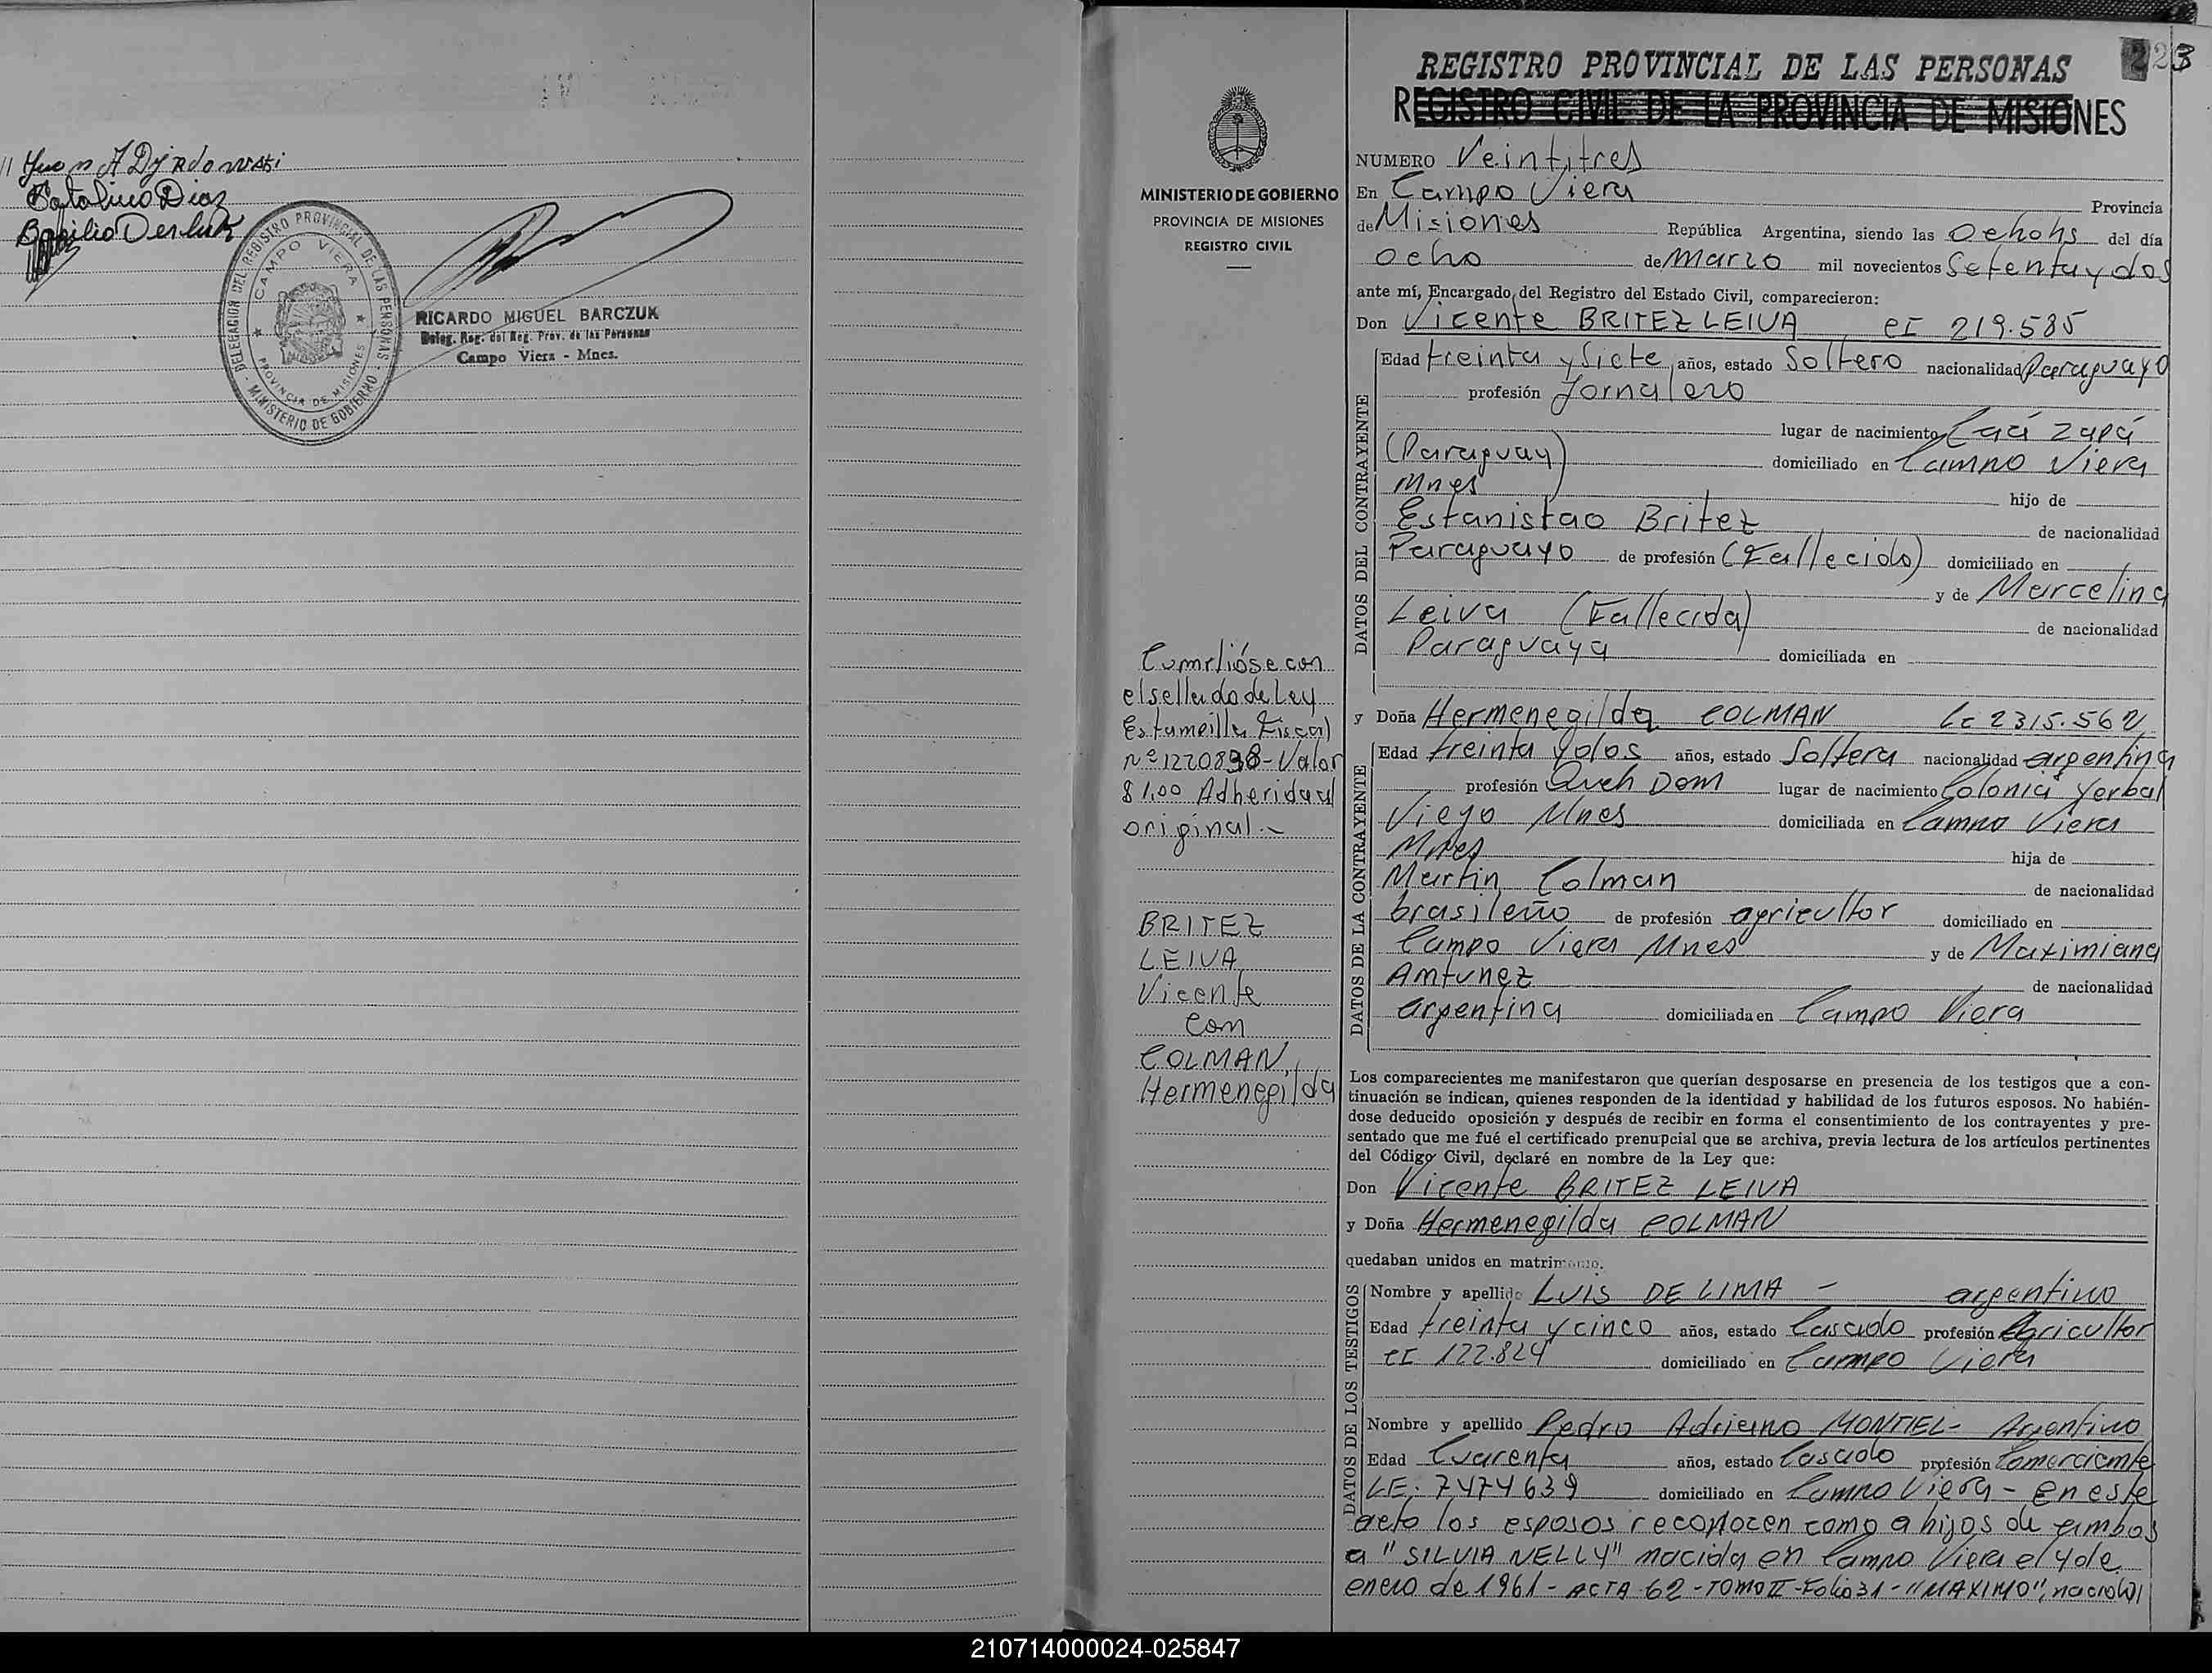 Catalino Diaz
DELEGACION DEL REGISTRO PROVINCIAL DE LAS PERSONAS
MINISTERIO DE GOBIERNO
CAMPO VIERA
PROVINCIA DE MISIONES
RICARDO MIGUEL BARCZUK
Deleg. Reg. del Reg. Prov. de las Personas
Campo Viera - Mnes.
MINISTERIO DE GOBIERNO
PROVINCIA DE MISIONES
REGISTRO CIVIL
Cumplióse con
el sellado de Ley
Estampilla Fiscal
nº 1220898 - Valor
$ 1,00 Adherida al
original.-
BRITEZ
LEIVA
Vicente
Con
COLMAN,
Hermenegilda
REGISTRO PROVINCIAL DE LAS PERSONAS
REGISTRO CIVIL DE LA PROVINCIA DE MISIONES
NUMERO Veintitres
En Campo Viera Provincia
de Misiones República Argentina, siendo las Ocho hs del día
ocho de Marzo mil novecientos Setenta y dos
ante mí, Encargado del Registro del Estado Civil, comparecieron:
Don Vicente BRITEZ LEIVA CI 219.585
DATOS DEL CONTRAYENTE
Edad treinta y Siete años, estado Soltero nacionalidad Paraguayo
profesión Jornalero
lugar de nacimiento Caá zapá
(Paraguay) domiciliado en Campo Viera
Mnes hijo de
Estanislao Britez de nacionalidad
Paraguayo de profesión (Fallecido) domiciliado en
y de Marcelina
Leiva (Fallecida) de nacionalidad
Paraguaya domiciliada en
y Doña Hermenegilda COLMAN Lc 2315.562
DATOS DE LA CONTRAYENTE
Edad treinta y dos años, estado Soltera nacionalidad argentina
profesión Queh Dom lugar de nacimiento Colonia Yerbal
Viejo Mnes domiciliada en Campo Viera
Mnes hija de
Martin Colman de nacionalidad
brasileño de profesión agricultor domiciliado en
Campo Viera Mnes y de Maximiana
Amtunez de nacionalidad
argentina domiciliada en Campo Viera
Los comparecientes me manifestaron que querían desposarse en presencia de los testigos que a con-
tinuación se indican, quienes responden de la identidad y habilidad de los futuros esposos. No habién-
dose deducido oposición y después de recibir en forma el consentimiento de los contrayentes y pre-
sentado que me fué el certificado prenupcial que se archiva, previa lectura de los artículos pertinentes
del Código Civil, declaré en nombre de la Ley que:
Don Vicente BRITEZ LEIVA
y Doña Hermenegilda COLMAN
quedaban unidos en matrimonio.
DATOS DE LOS TESTIGOS
Nombre y apellido LUIS DE LIMA - argentino
Edad treinta y cinco años, estado Casado profesión Agricultor
CI 122.824 domiciliado en Campo Viera
Nombre y apellido Pedro Adriano MONTIEL - Argentino
Edad Cuarenta años, estado Casado profesión Comerciante
LE. 7474639 domiciliado en Campo Viera - en este
acto los esposos reconocen como a hijos de ambos
a "SILVIA NELLY" nacida en Campo Viera el 4 de
enero de 1961 - ACTA 62 - TOMO II - Folio 31 - "MAXIMO",
210714000024-025847